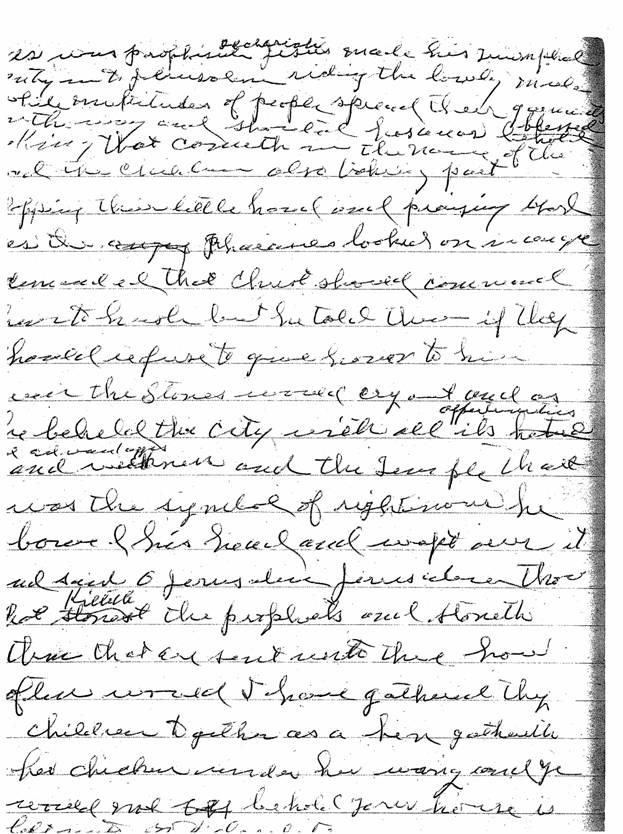 es was prophised Zechariah Jesus made his triumphal
entry into Jerusalem riding the lowly mule
while multitudes of people spread their garments
in the way and shouted hosanas blessed
King that cometh in the name of the
and the children also taking part
clapping their little hand and praising God
as the Phariases looked on in anger
demanded that Christ should command
them to hush but he told them if they
should refuse to give honor to him
even the Stones would cry out and as
he beheld the city with all its opportunities
advantages
and and the Temple that
was the symbol of he
bowed his head and wept over it
and said O Jerusalem Jerusalem Thou
that Killeth the prophets and stoneth
them that are sent unto thee how
often would I have gathered thy
children together as a hen gathereth
her chicken under her wing and ye
would not behold your house is
left unto